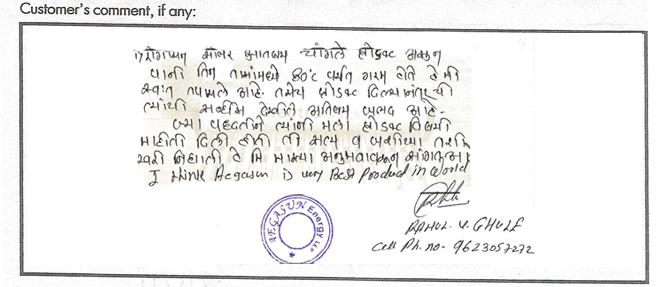 Customer's comment, if any:
सोलर अतिशय चांगले प्रोडक्ट असून
पाणी तिन तासांमध्ये 80°c पर्यंत गरम होते हे मी
स्वतः तपासले आहे. तसेच प्रोडक्ट
त्यांची सर्व्हीस देखील अतिशय आहे.
ज्या पद्धतीने त्यांनी मला प्रोडक्ट विषयी
माहीती दिली होती ती सत्य व
खरी निघाली हे मि माझ्या अनुभवावरून सांगत आहे
I think Aegasun is very Best Product in World
AEGASUN Energy LLP
RAHUL. V. GHULE
Cell Ph. no- 9623057272